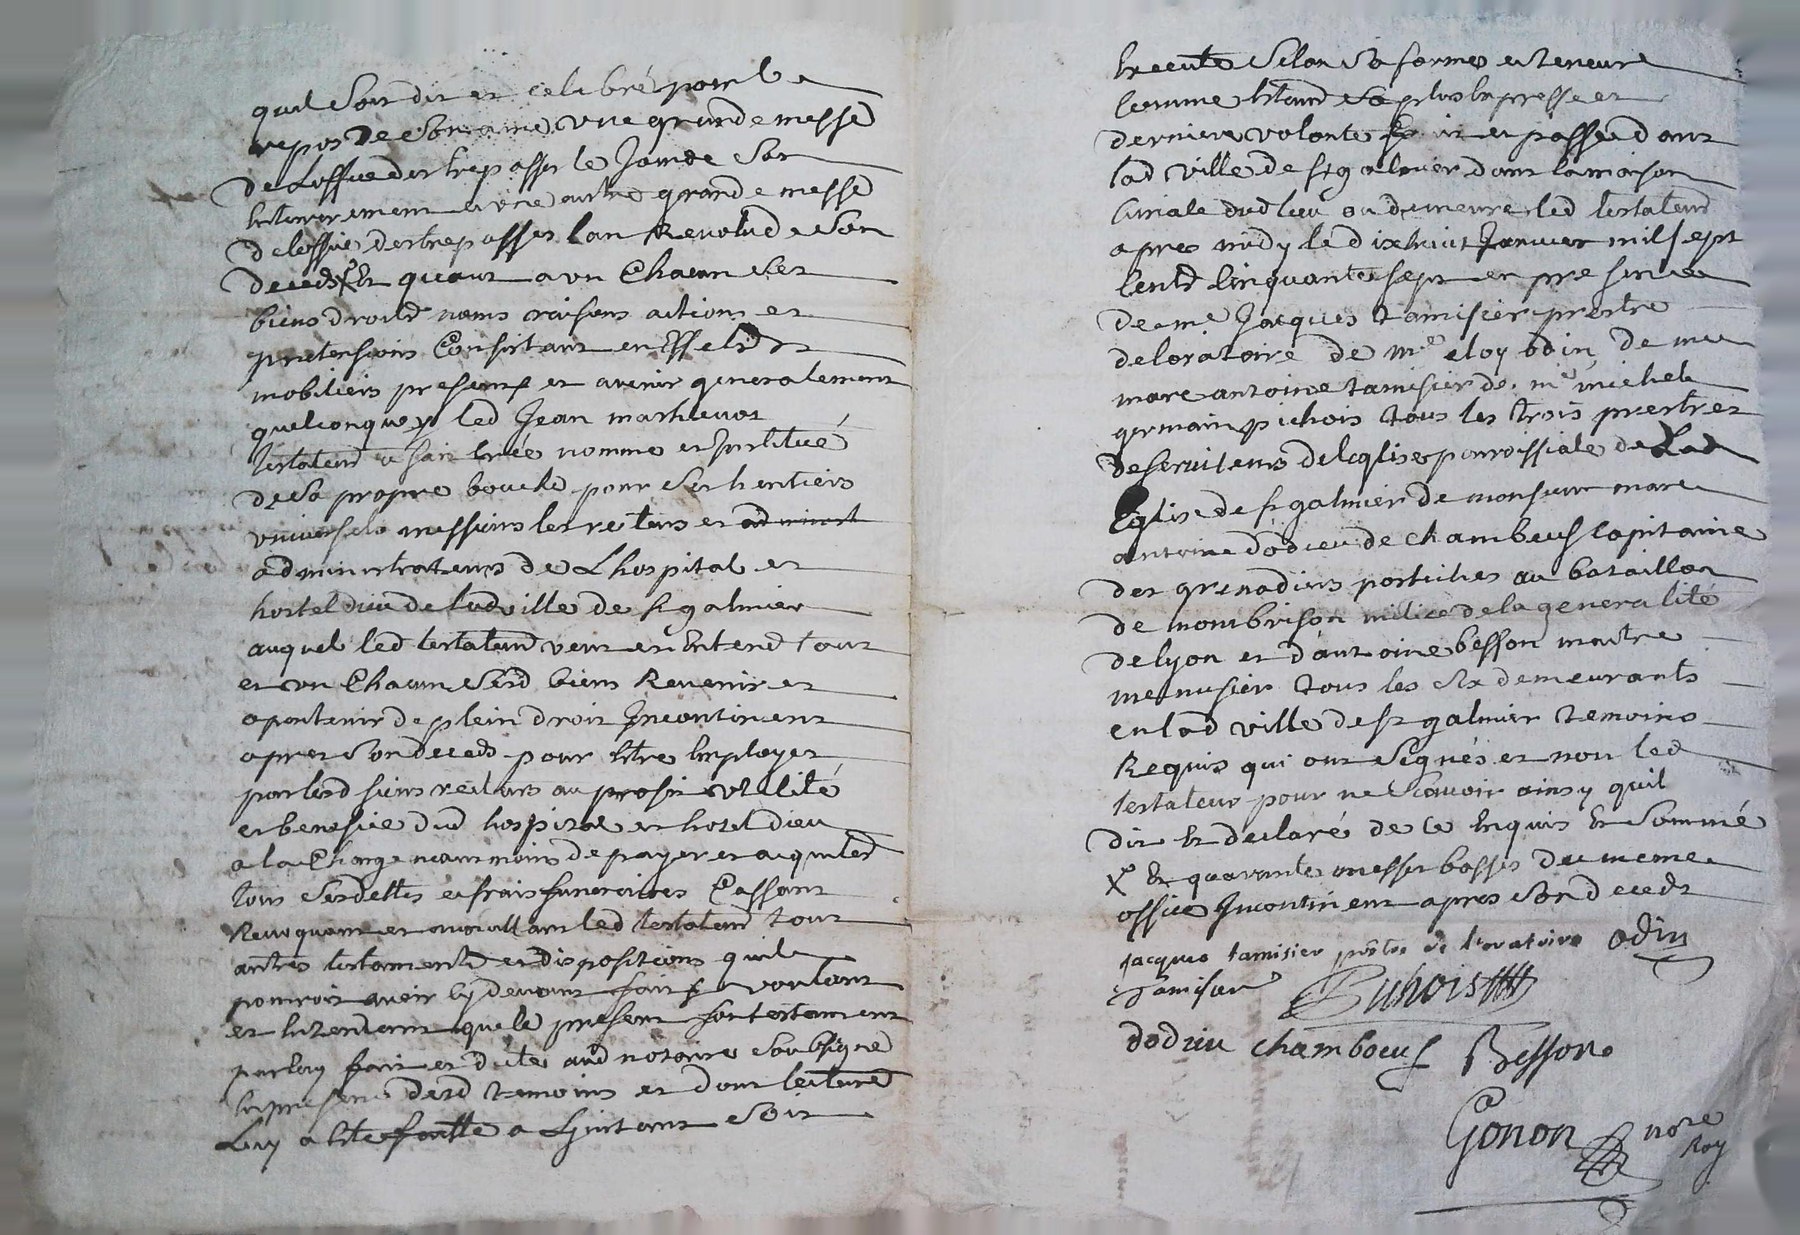 quil soit dit et celebré pour le
repos de son ame une grande messe
de Loffice des trepasses le Jour de son
enterrement et une autre grande messe
de loffice des trepasses lan Revolu de son
deceds X Et quant a un Chacun ses
biens droits noms raisons actions et
pretensions Consistant en effets et
mobiliers presents et avenir generalement
quelconques led Jean
testateur a fait créé nommé et institué
de sa propre bouche pour ses heritiers
universels messieurs les recteurs et administ
administrateurs de Lhospital et
hostel dieu de lad ville de st galmier
auquel led testateur veut et Entend tout
et un Chacun sesd biens Revenir et
apartenir de plein droit Incontinent
apres son deceds pour etre Employes
par lesd sieurs recteurs au profit utilité
et benefice dud hospital et hotel dieu
a la Charge neantmoins de payer et acquiter
tous ses dettes et frais funeraires Cassant
Revoquant et annullant led testateur tout
autres testaments et dispositions quil
pourroit avoir cy devant fait voulant
et Entendant que le present son testament
par luy fait et dicté aud notaire soubsigné
En presence desd temoins et dont lecture
Luy a ete faitte a Linstant soit
Executé selon sa forme et teneur
Comme Etant sa plus Expresse et
derniere volonté fait et passé dans
lad ville de st galmier dans la maison
Curiale dud lieu ou demeure led testateur
apres midy le dixhuit Janvier mil sept
Cents Cinquante sept en presence
de me Jacques tamisier prestre
de loratoire de me eloy odin de me
marc antoine tamisier de me michel
germain pichois tous les trois prestres
deserviteurs de leglise parroissiale de Lad
Eglise de st galmier de monsieur marc
antoine dodieu de chambeuf Capitaine
des grenadiers postiches au bataillon
de mombrison milice de la generalité
de lyon et dantoine besson maitre
menusier tous les six demeurants
en lad ville de st galmier temoins
Requis qui ont signés et non led
testateur pour ne scavoir ainsy quil
dit Et declaré de ce Enquis Et sommé
X Et quarante messes basses du meme
office Incontinent apres son deceds
Jacques tamisier prêtre de l'oratoire odin
Tamisier
dodieu chamboeuf Besson
Gonon nore
Roy